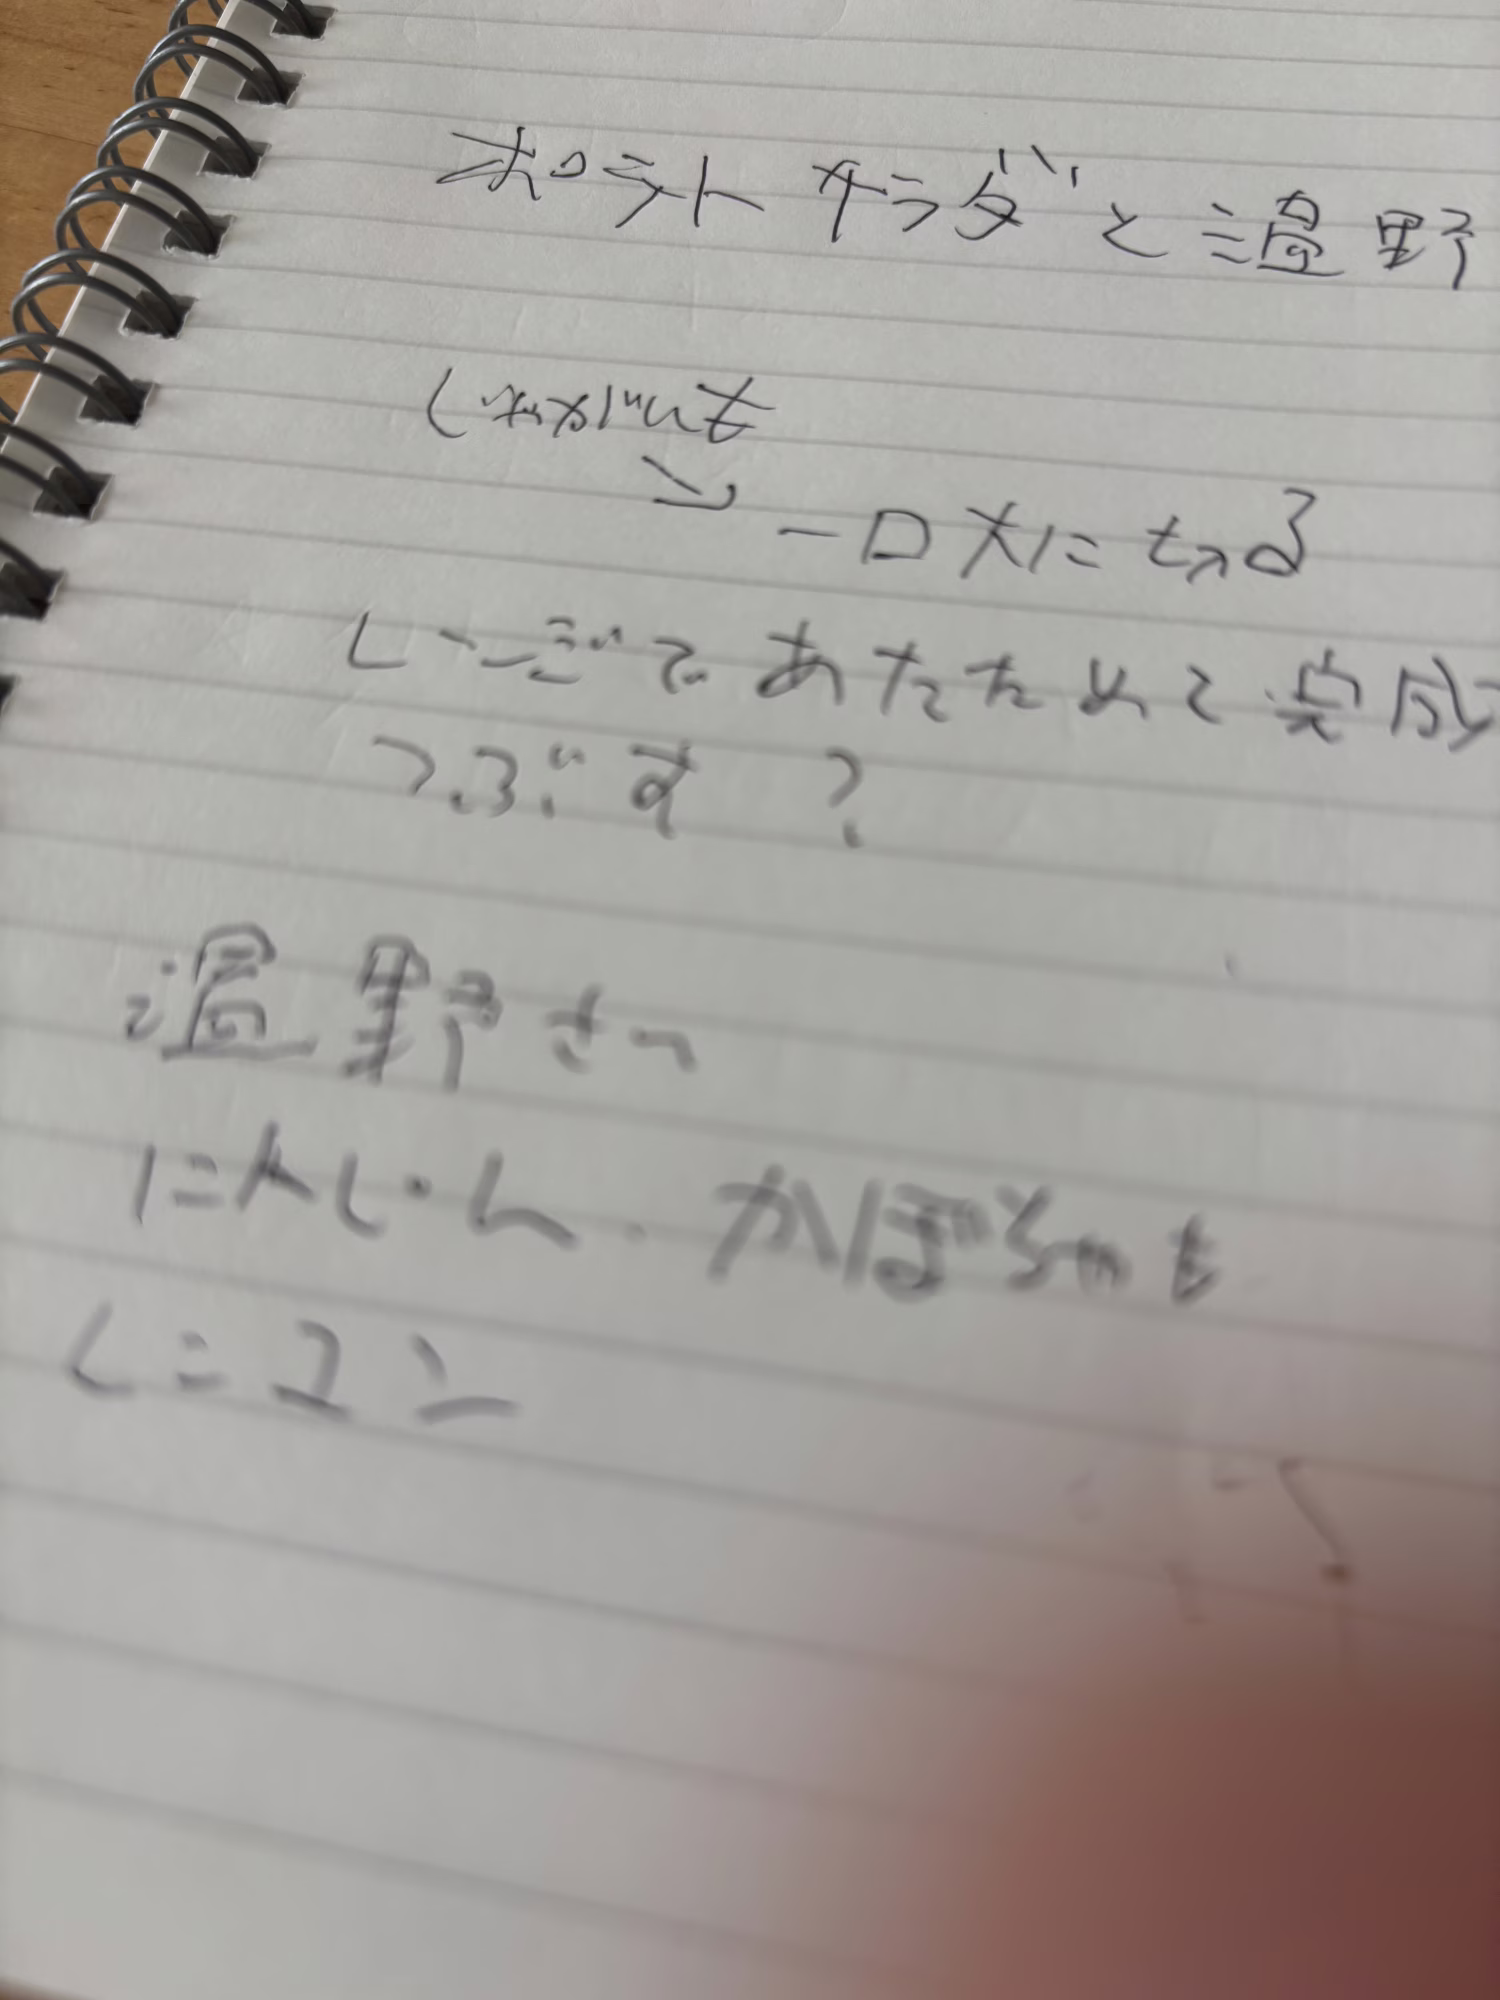 ポテトサラダと温野
じゃがいも
一口大にきる
レンジであたためて完成
つぶす?
温野さい
にんじん かぼちゃも
レンコン